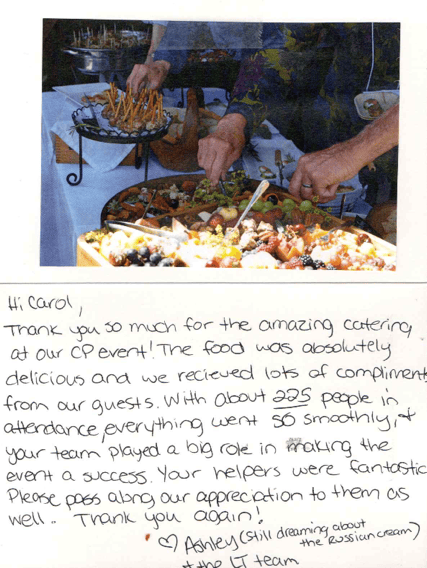 Hi Carol,
Thank you so much for the amazing catering
at our CP event! The food was absolutely
delicious and we recieved lots of compliments
from our guests. With about 225 people in
attendance, everything went so smoothly, &
your team played a big role in making the
event a success. Your helpers were fantastic.
Please pass along our appreciation to them as
well.. Thank you again!
♡ Ashley (still dreaming about
the Russian cream)
& the LT team